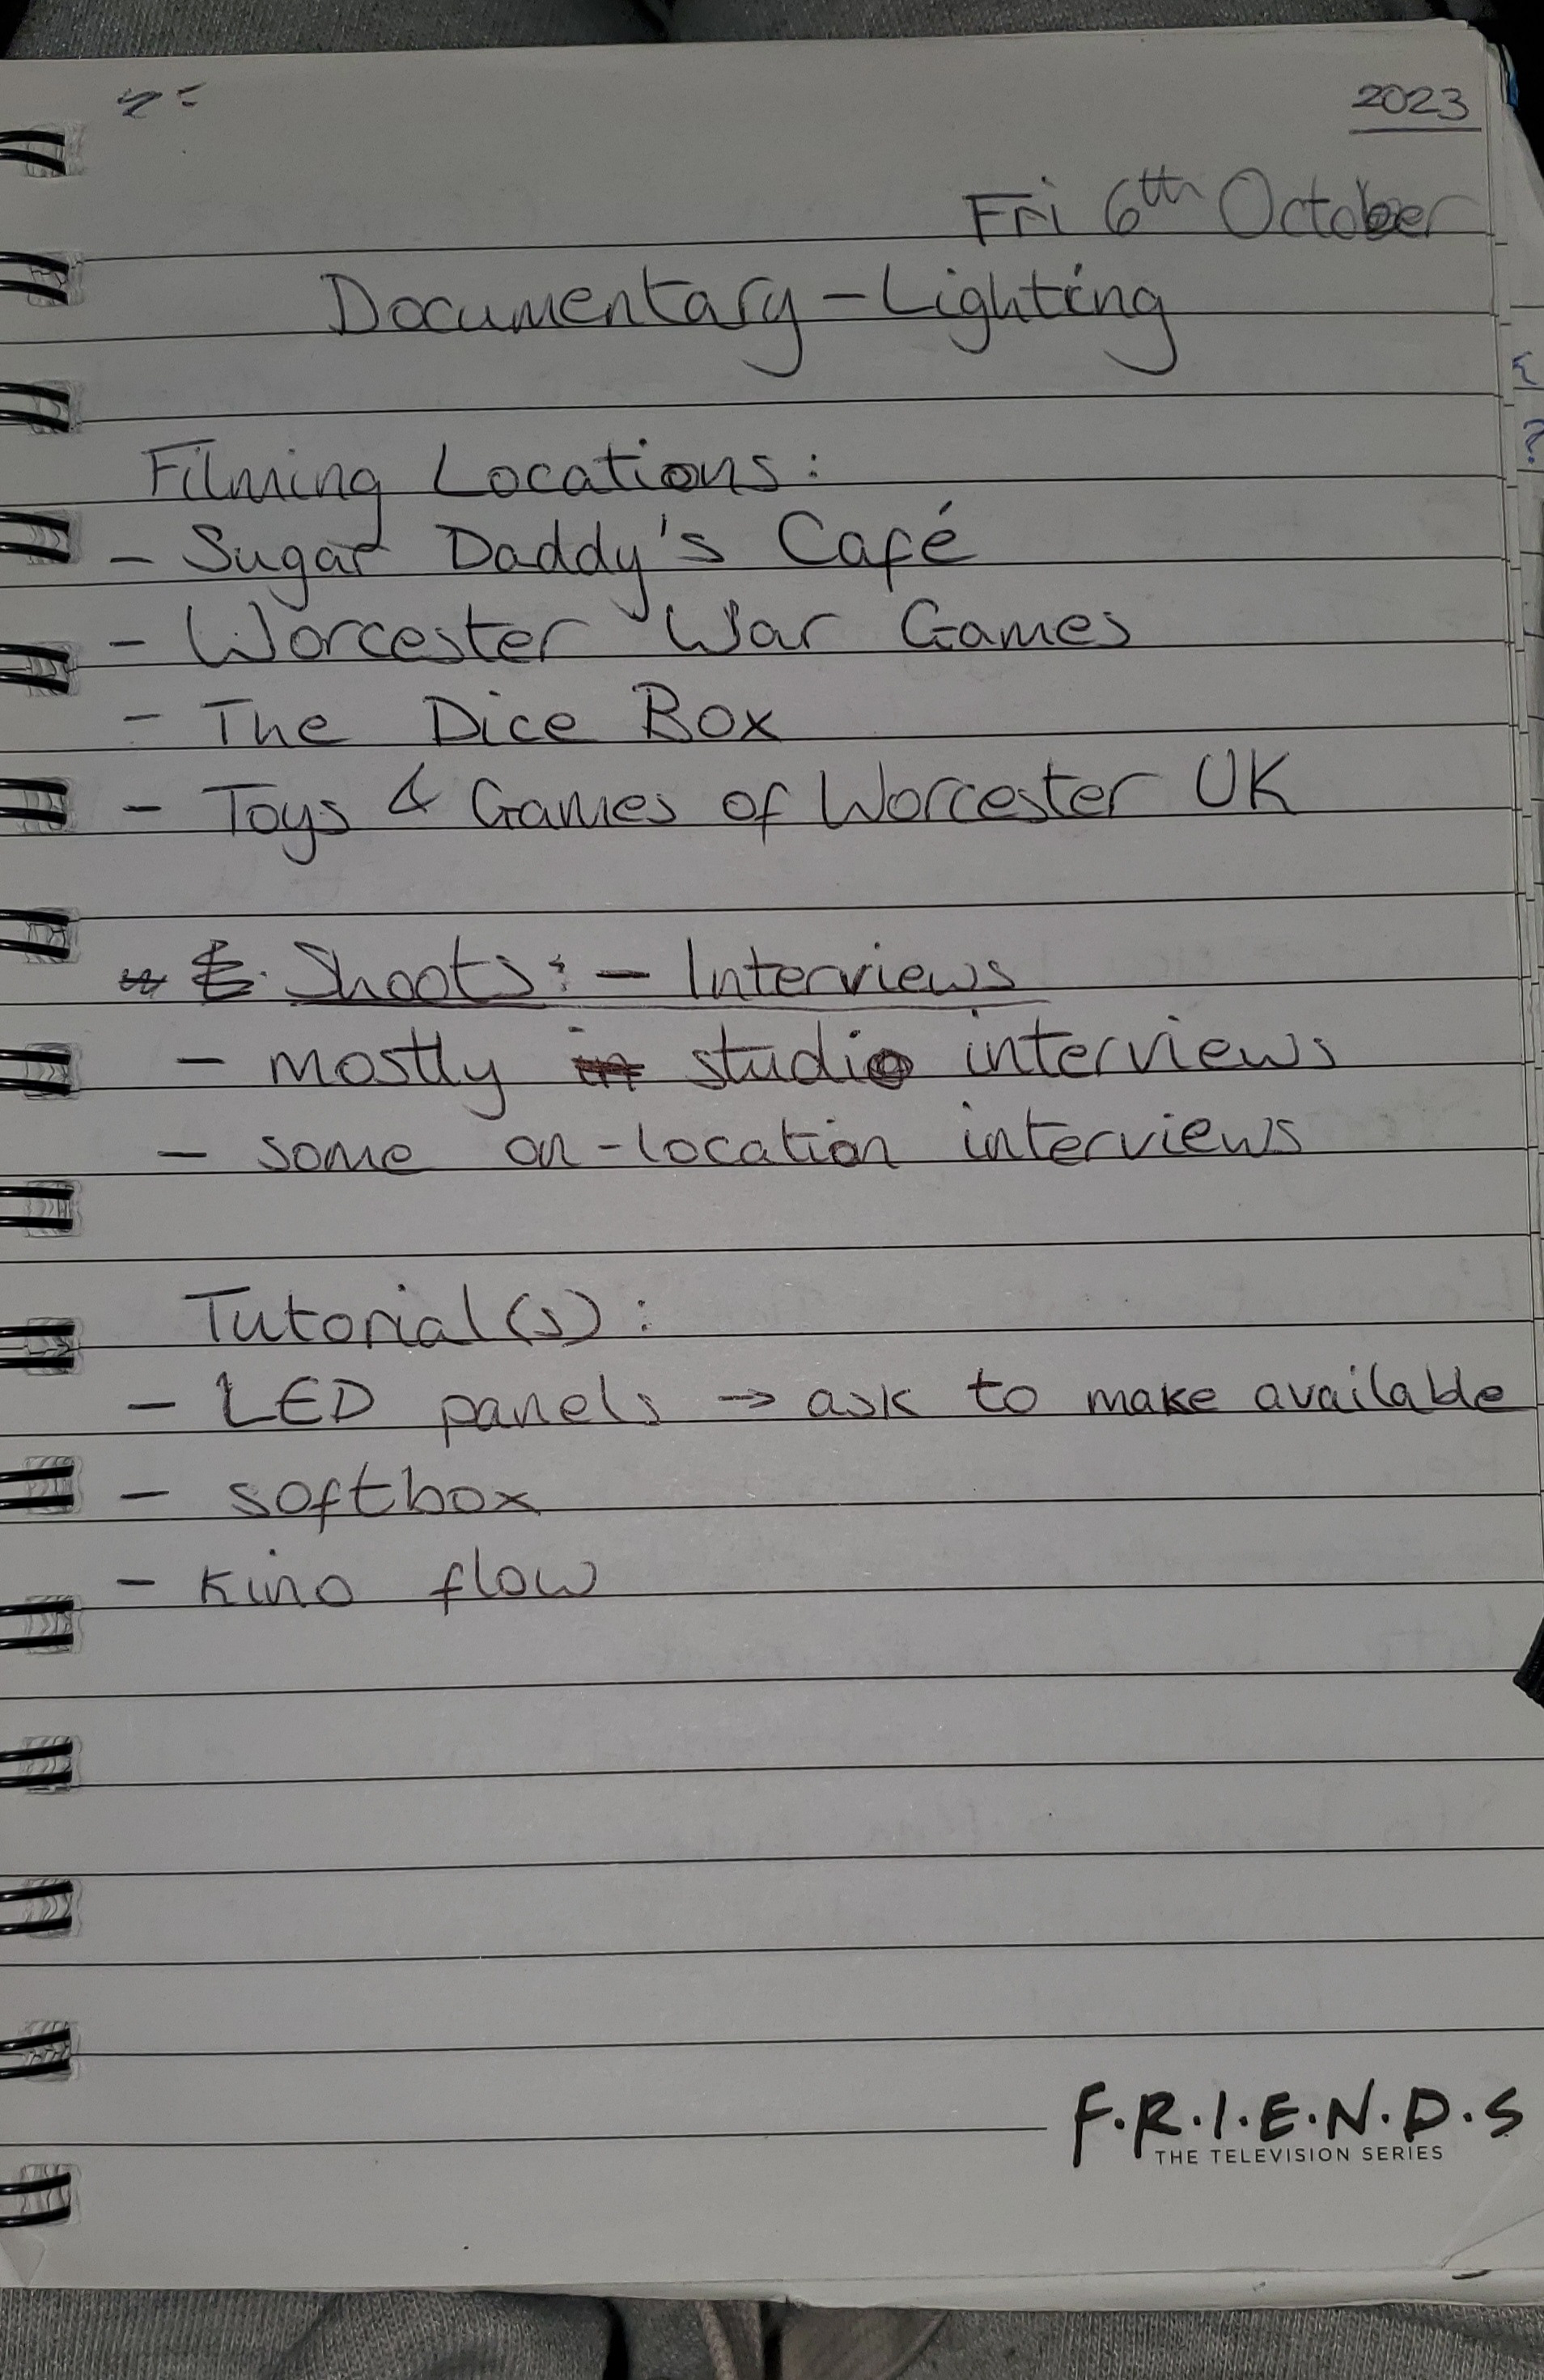 2023
Fri 6th October
Documentary - Lighting
Filming Locations:
- Sugar Daddy's Café
- Worcester War Games
- The Dice Box
- Toys & Games of Worcester UK
Shoots: - Interviews
- mostly studio interviews
- some on-location interviews
Tutorial(s):
- LED panels → ask to make available
- softbox
- kino flow
F.R.I.E.N.D.S
THE TELEVISION SERIES